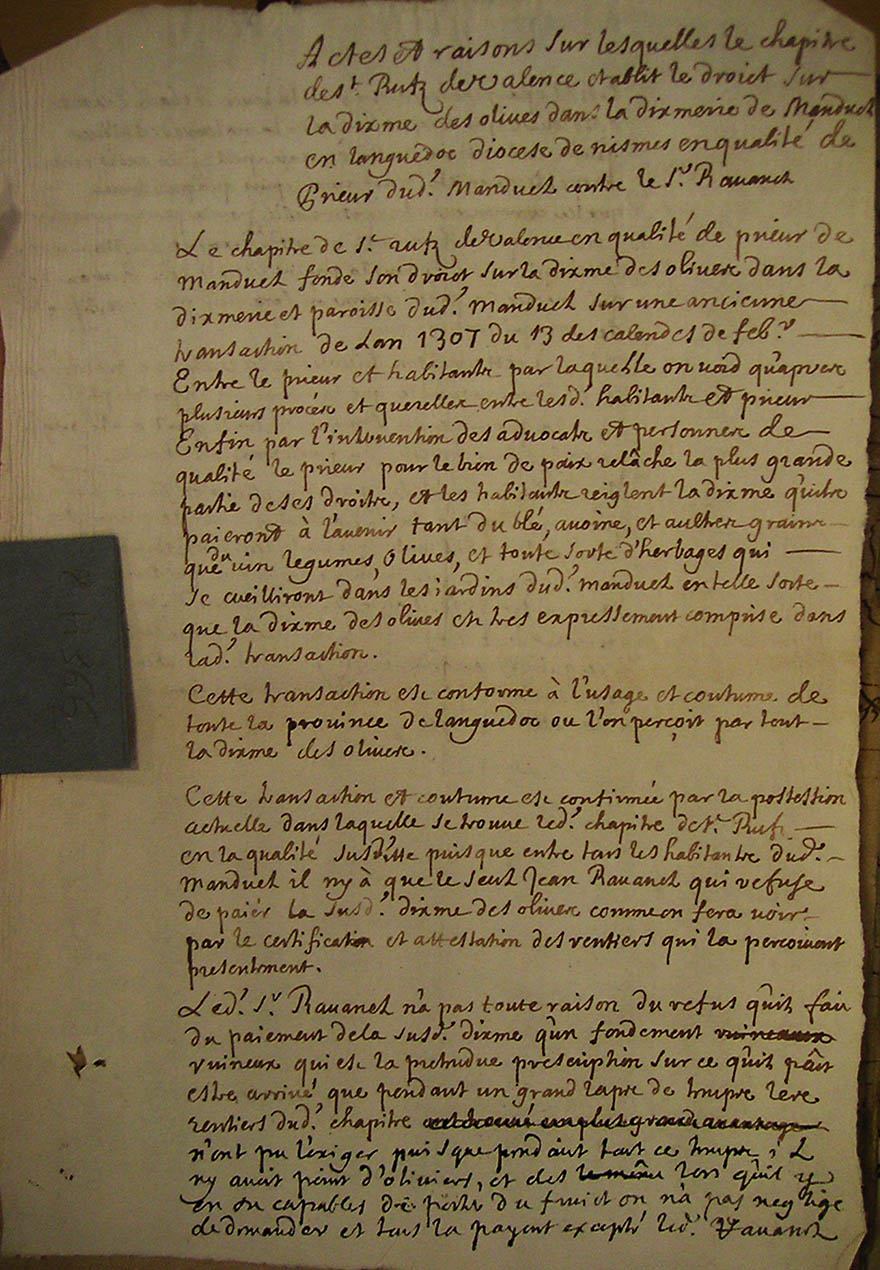 Actes et raisons sur lesquelles le chapitre
de st. Rufz de Valence establit le droict sur
la dixme des olives dans la dixmerie de Manduel
en languedoc diocese de nismes en qualité de
Prieur dud.t Manduel contre le Sr. Ravanel
Le chapitre de St. rufz de Valence en qualité de prieur de
Manduel fonde son droict sur la dixme des olives dans la
dixmerie et paroisse dud.t Manduel sur une ancienne
transaction de Lan 1307 du 13 des calendes de feb.r
Entre le prieur et habitants par laquelle on void qu'apres
plusieurs procés et querelles entre lesd.t habitants et prieur
Enfin par l'intervention des advocats et personnes de
qualité le prieur pour le bien de paix relâche la plus grande
partie de ses droits, et les habitants reiglent la dixme qu'ils
paieront à l'avenir tant du blé, avoine, et aultres grains
que du vin legumes, Olives, et toute sorte d'herbages qui
se cueilliront dans les jardins dud.t Manduel en telle sorte
que la dixme des olives est tres expressement comprise dans
lad.t transaction.
Cette transaction est conforme à l'usage et coutume de
toute la province de languedoc ou l'on perçoit par tout
la dixme des olives.
Cette transaction et coutume est confirmée par la possession
actuelle dans laquelle se trouve led.t chapitre de St. Rufz
en la qualité susditte puisque entre tous les habitants dud.t
Manduel il ny à que le seul Jean Ravanel qui refuse
de paier la susd.t dixme des olives comme on fera voir
par le certification et attestation des rentiers qui la perçoivent
presentement.
Led.t Sr. Ravanel n'a pas toute raison du refus qu'il fait
du paiement de la susd.t dixme qu'un fondement
ruineux qui est la pretendue prescription sur ce qu'il paroit
estre arrivé que pendant un grand laps de temps les
rentiers dud.t chapitre
n'ont pu l'exiger puisque pendant tout ce temps il
ny avoit point d'oliviers, et des lors qu'il y
en eu capables de porter du fruict on n'a pas negligé
de demander et tous la payent excepté led.t Ravanel